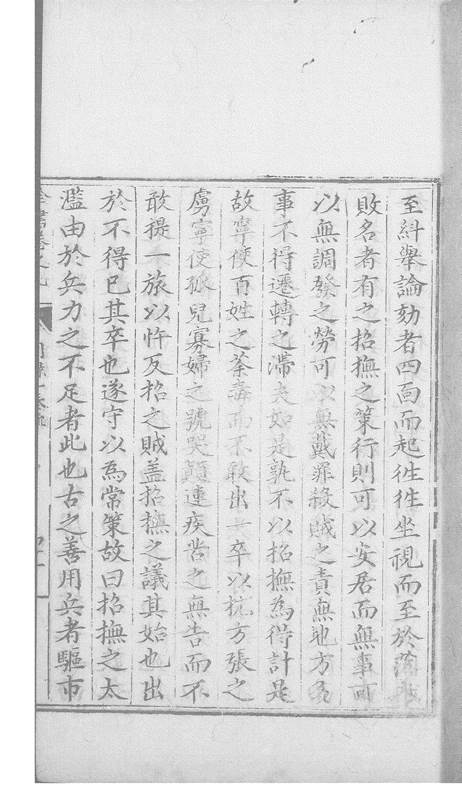 至糾舉論劾者四面而起徃徃坐視而至於
敗名者有之招撫之策行則可以安居而無事可
以無調發之勞可以無戴罪殺賊之責無地方多
事不得遷轉之滯夫如是孰不以招撫為得計是
故寧使百姓之荼毒而不敢出一卒以抗方張之
虜寧使孤兒寡婦之號哭顛連疾苦之無告而不
敢提一旅以忤反招之賊盖招撫之議其始也出
於不得已其卒也遂守以為常策故曰招撫之太
濫由於兵力之不足者此也古之善用兵者驅市